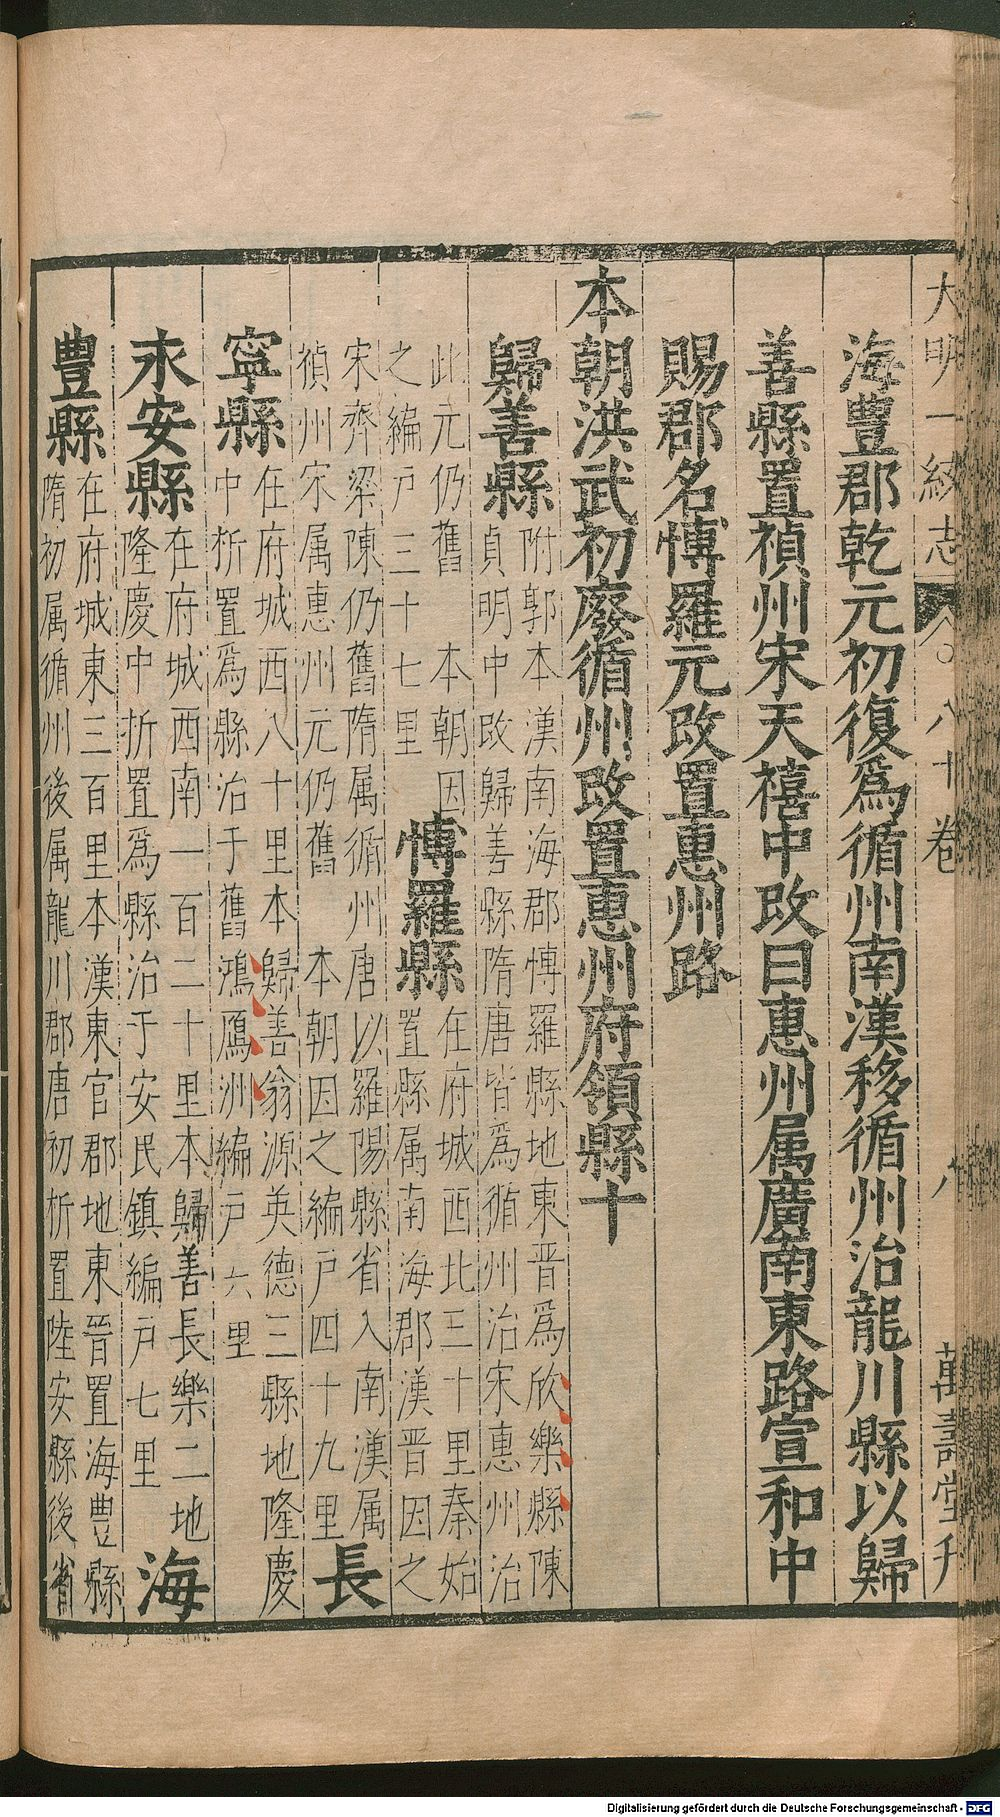 大明一統志
八十卷
八
萬壽堂刋
海豊郡乾元初復爲循州南漢移循州治龍川縣以歸
善縣置禎州宋天禧中改曰惠州属廣南東路宣和中
賜郡名博羅元改置惠州路
本朝洪武初廢循州改置惠州府領縣十
歸善縣
附郭本漢南海郡博羅縣地東晋爲欣樂縣陳
貞明中改歸善縣隋唐皆爲循州治宋惠州治
此元仍舊 本朝因
之編戸三十七里
博羅縣
在府城西北三十里秦始
置縣属南海郡漢晋因之
宋齊梁陳仍舊隋属循州唐以羅陽縣省入南漢属
禎州宋属惠州元仍舊 本朝因之編戸四十九里
長
寧縣
在府城西八十里本歸善翁源英德三縣地隆慶
中析置爲縣治于舊鴻鴈洲編戸六里
永安縣
在府城西南一百二十里本歸善長樂二地
隆慶中折置爲縣治于安民鎮編戸七里
海
豊縣
在府城東三百里本漢東官郡地東晉置海豊縣
隋初属循州後属龍川郡唐初析置陸安縣後省
Digitalisierung gefördert durch die Deutsche Forschungsgemeinschaft - DFG